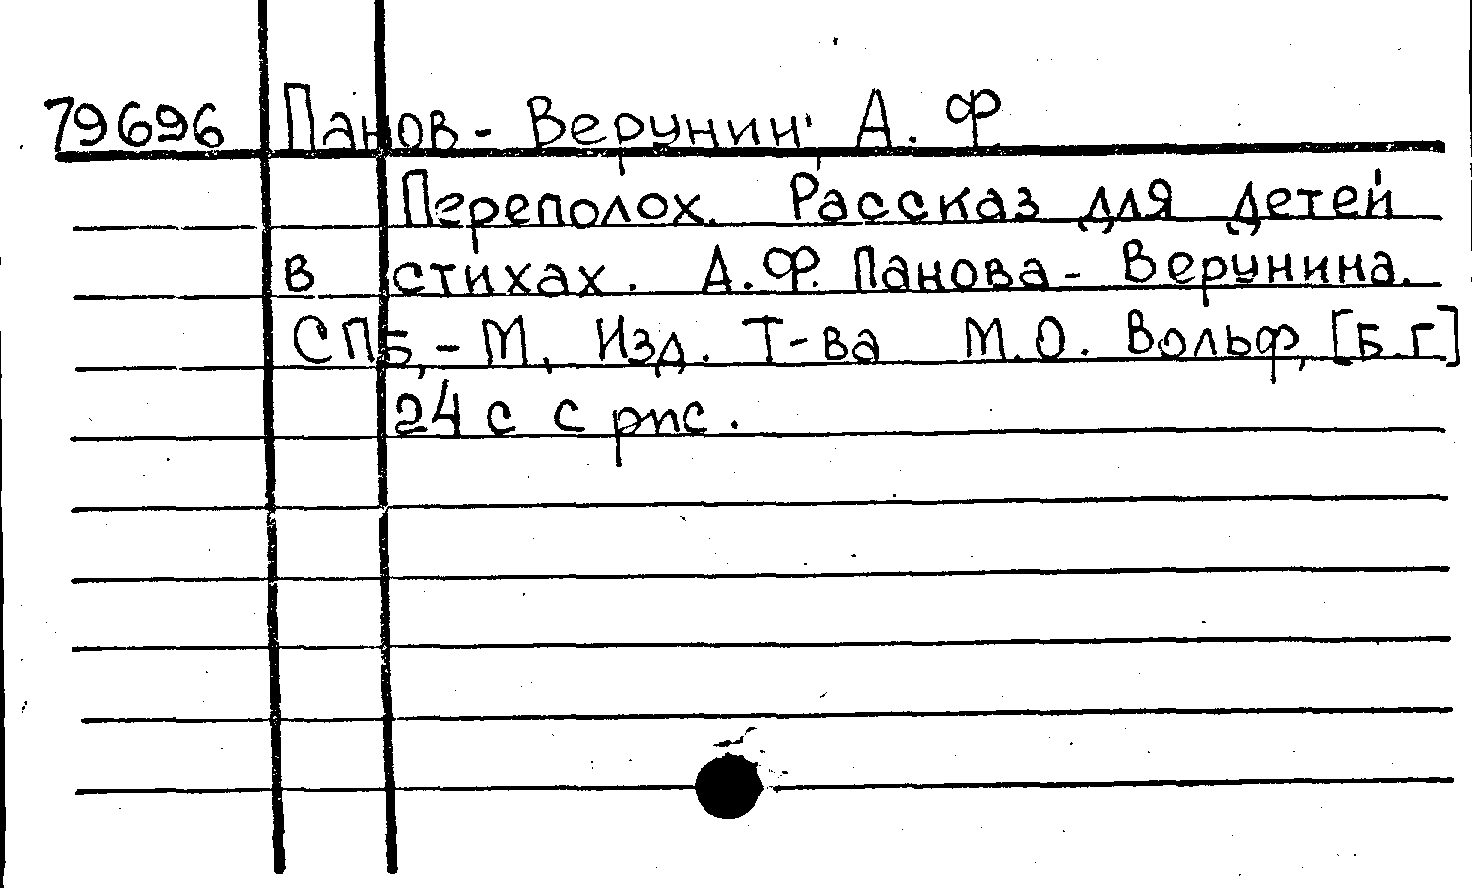 79696 Панов - Верунин, А. Ф
Переполох. Рассказ для детей
в стихах. А.Ф. Панова - Верунина.
СПБ, - М, Изд. Т-ва М.О. Вольф, [Б.Г]
24 с с рис.